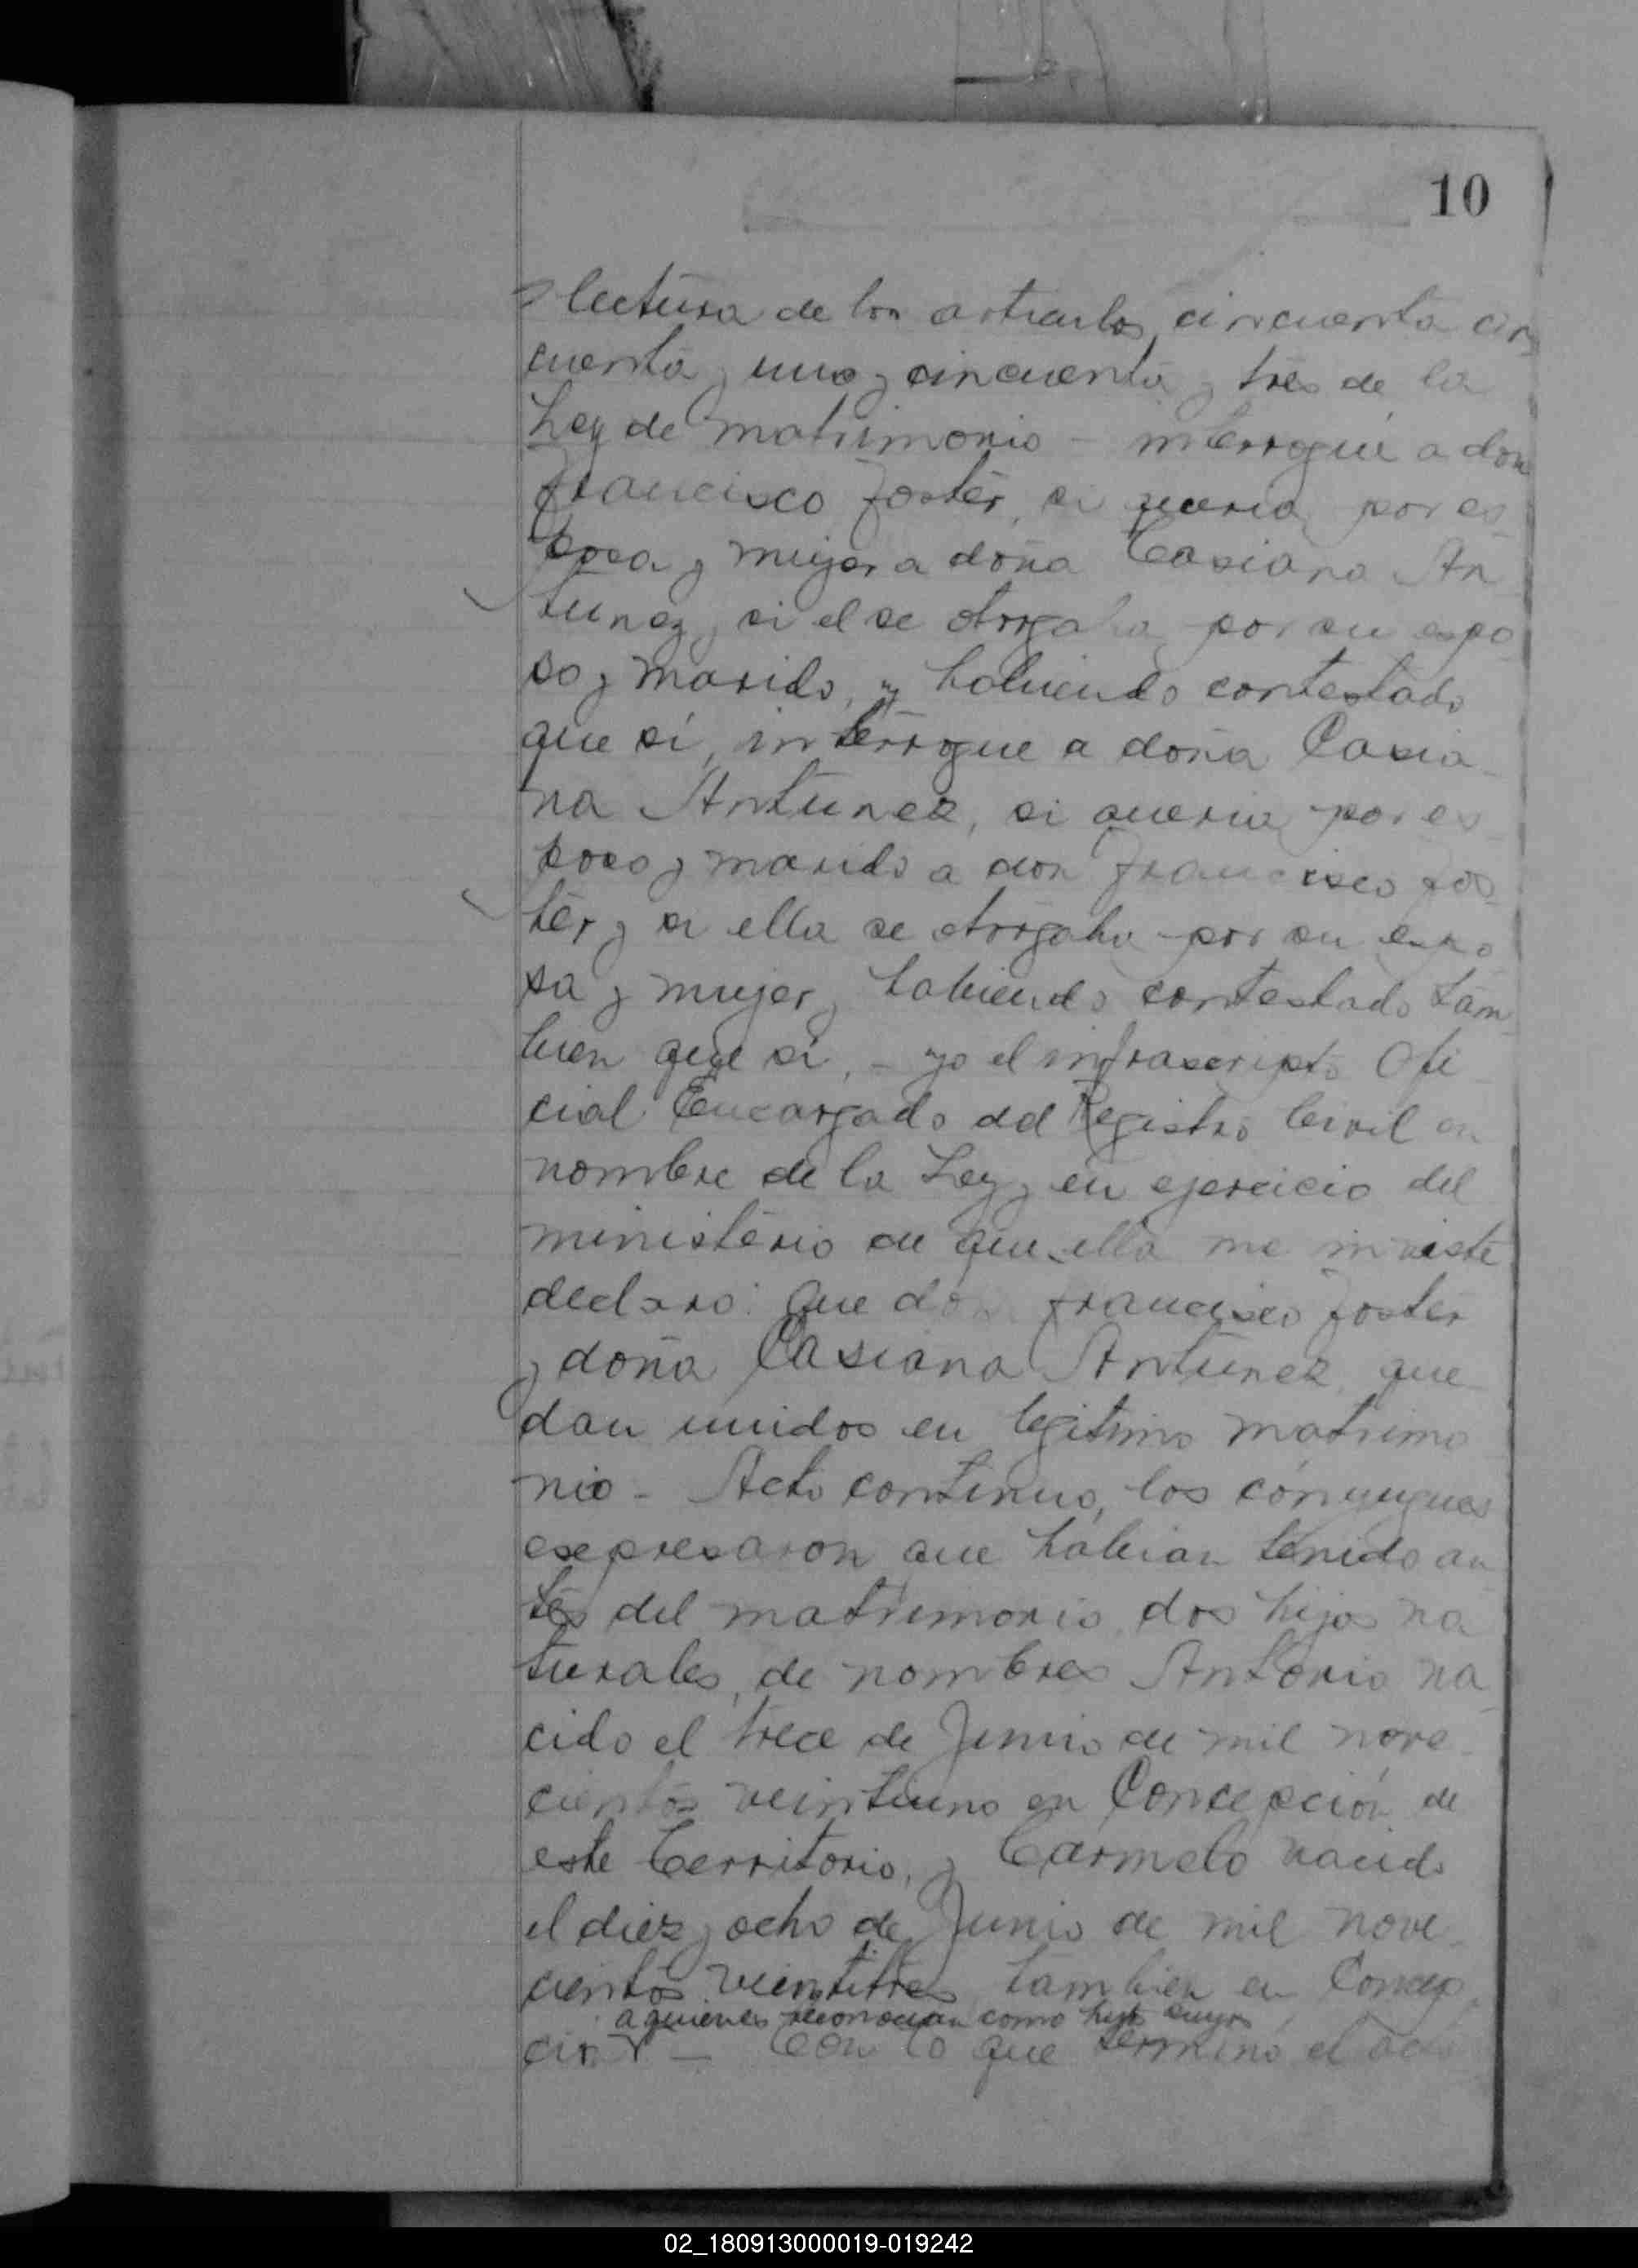 10
lectura de los articulos, cincuenta cin
cuenta y uno y cincuenta y tres de la
Ley de matrimonio - interrogué a don
Francisco Foster, si queria por es
posa y mujer a doña Casiana An
tunez y si el se otorgaba por su espo
so y marido, y habiendo contestado
que sí, interrogue a doña Casia-
na Antunez, si queria por es
poso y marido a don Francisco Fos-
ter y si ella se otorgaba por su espo
sa y mujer, habiendo contestado tam
bien que si, - yo el infrascripto Ofi
cial Encargado del Registro Civil en
nombre de la Ley y en ejercicio del
ministerio de que ella me inviste
declaro: que don Francisco Foster
y doña Casiana Antunez que
dan unidos en legitimo matrimo
nio - Acto continuo, los cónyugues
expresaron que habian tenido an
tes del matrimonio dos hijos na
turales, de nombres Antonio na
cido el trece de Junio de mil nove-
cientos veintiuno en Concepción de
este Territorio, y Carmelo nacido
el diez y ocho de Junio de mil nove-
cientos veintitres tambien en Concep
a quienes reconocian como hijos suyos
cion - Con lo que terminó el acto
02_180913000019-019242